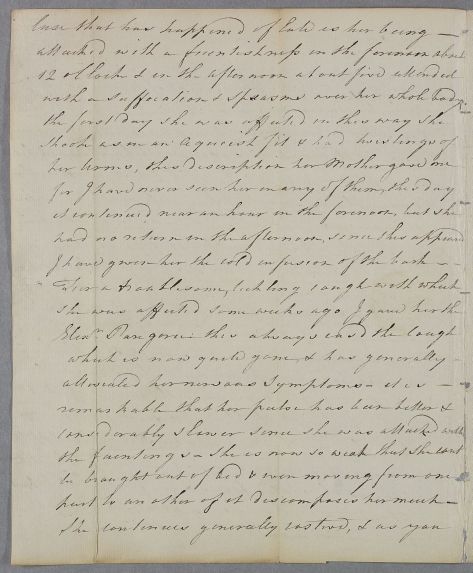 case that has happened of late is her being —
attacked with a faintishness in the forenoon about
12 o'Clock & in the afternoon about five attended
with a suffocation & Spasms over her whole body
the first day she was affected in this way she
shook as in an Agueish fit & had twistings of
her Arms, this description her Mother gave me
for I have never seen her in any of them, this day
it continued near an hour in the forenoon, but she
had no return in the afternoon, since this appeared
I have given her the cold infusion of the bark —
For a troublesome, tickling cough with which
she was affected some weeks ago I gave her the
Elixr Paregoric: this always eased the Cough
which is now quite gone, & has generally
alleviated her nervous Symptoms - it is —
remarkable that her pulse has been better &
considerably slower since she was attacked with
the faintings - She is now so weak that she cant
be brought out of bed & even moving from one
part to an other of it discomposes her much —
She continues generally costive, & as you